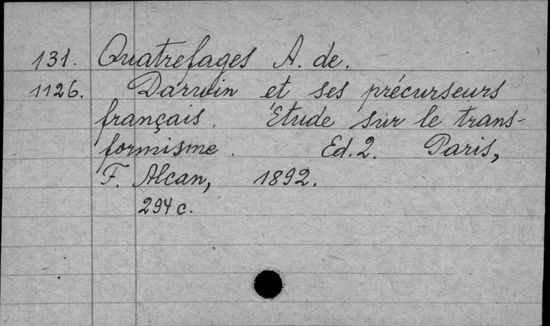 131. Quatrefages A. de.
1126. Darwin et ses précurseurs
français. Etude sur le trans-
formisme. Ed. 2. Paris,
F. Alcan, 1892.
294 c.